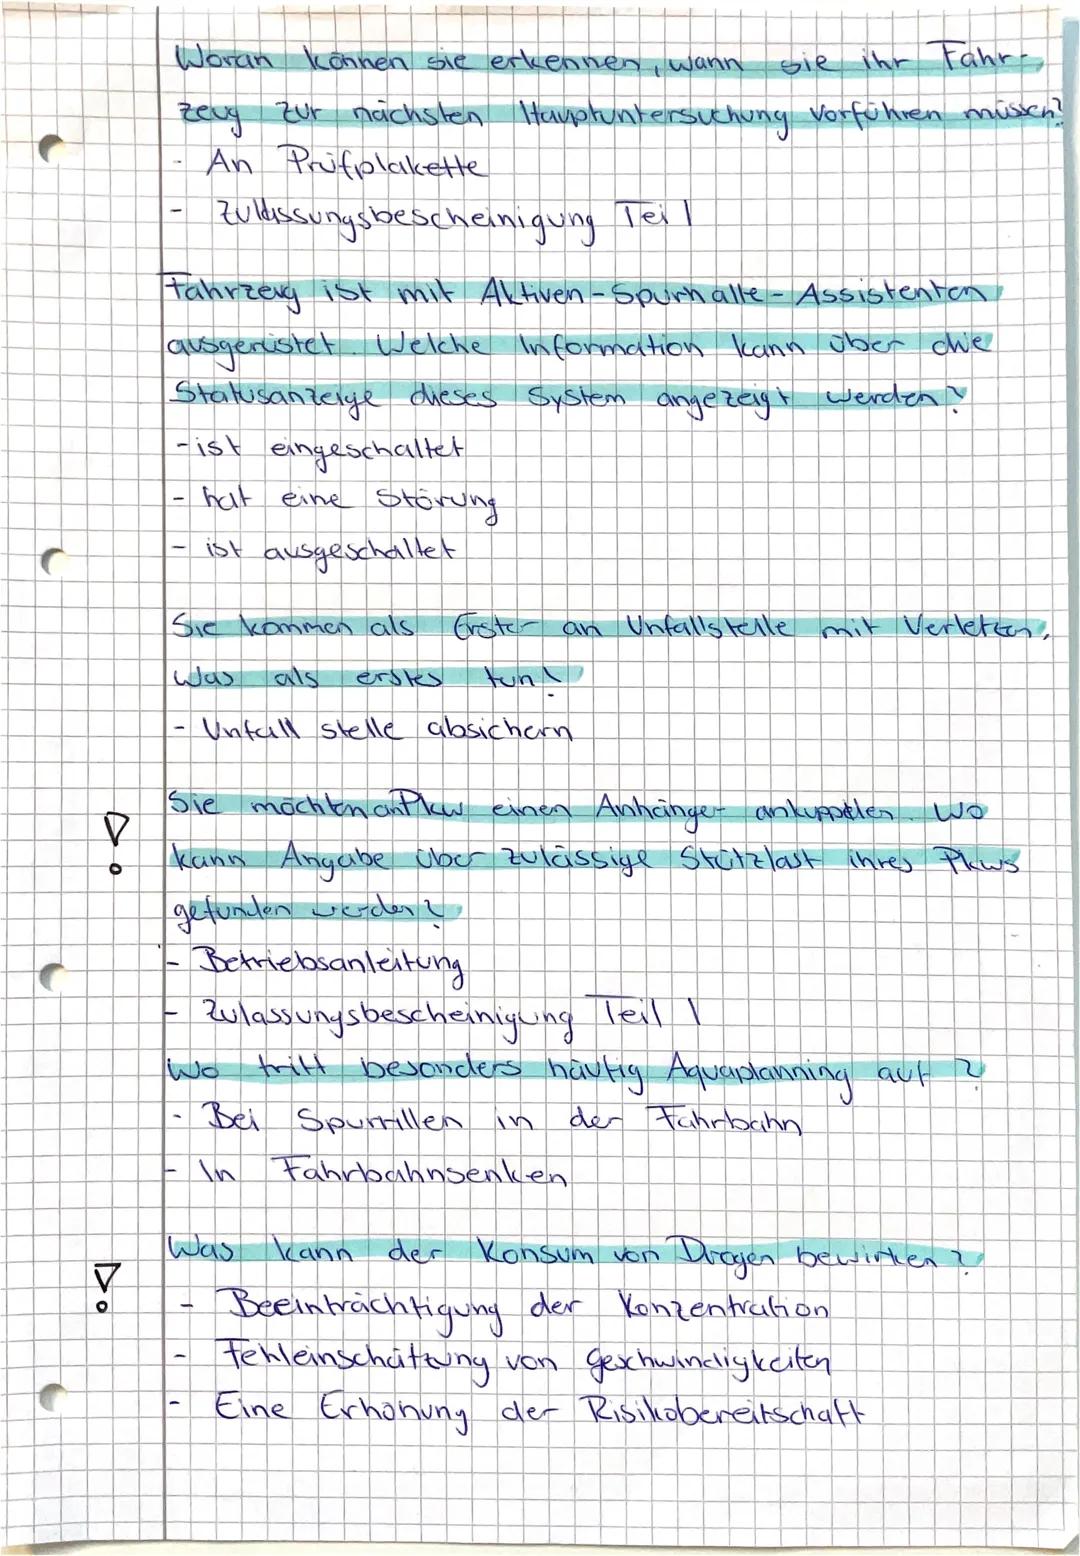 Woran können sie erkennen, wann sie ihr Fahr-
zeug zur nächsten Hauptuntersuchung vorführen müssen?
- An Prüfplakette
- Zulassungsbescheinigung Teil 1
Fahrzeug ist mit Aktiven-Spurhalte-Assistenten
ausgerüstet. Welche Information kann über die
Statusanzeige dieses System angezeigt werden?
- ist eingeschaltet
- hat eine Störung
- ist ausgeschaltet
Sie kommen als Erster an Unfallstelle mit Verletzten.
Was als erstes tun?
- Unfall stelle absichern
Sie möchten an Pkw einen Anhänger ankuppeln. Wo
kann Angabe über zulässige Stützlast ihres Pkws
gefunden werden?
- Betriebsanleitung
- Zulassungsbescheinigung Teil 1
Wo tritt besonders häufig Aquaplanning auf?
- Bei Spurrillen in der Fahrbahn
- In Fahrbahnsenken
Was kann der Konsum von Drogen bewirken?
- Beeinträchtigung der Konzentration
- Fehleinschätzung von Geschwindigkeiten
- Eine Erhöhung der Risikobereitschaft